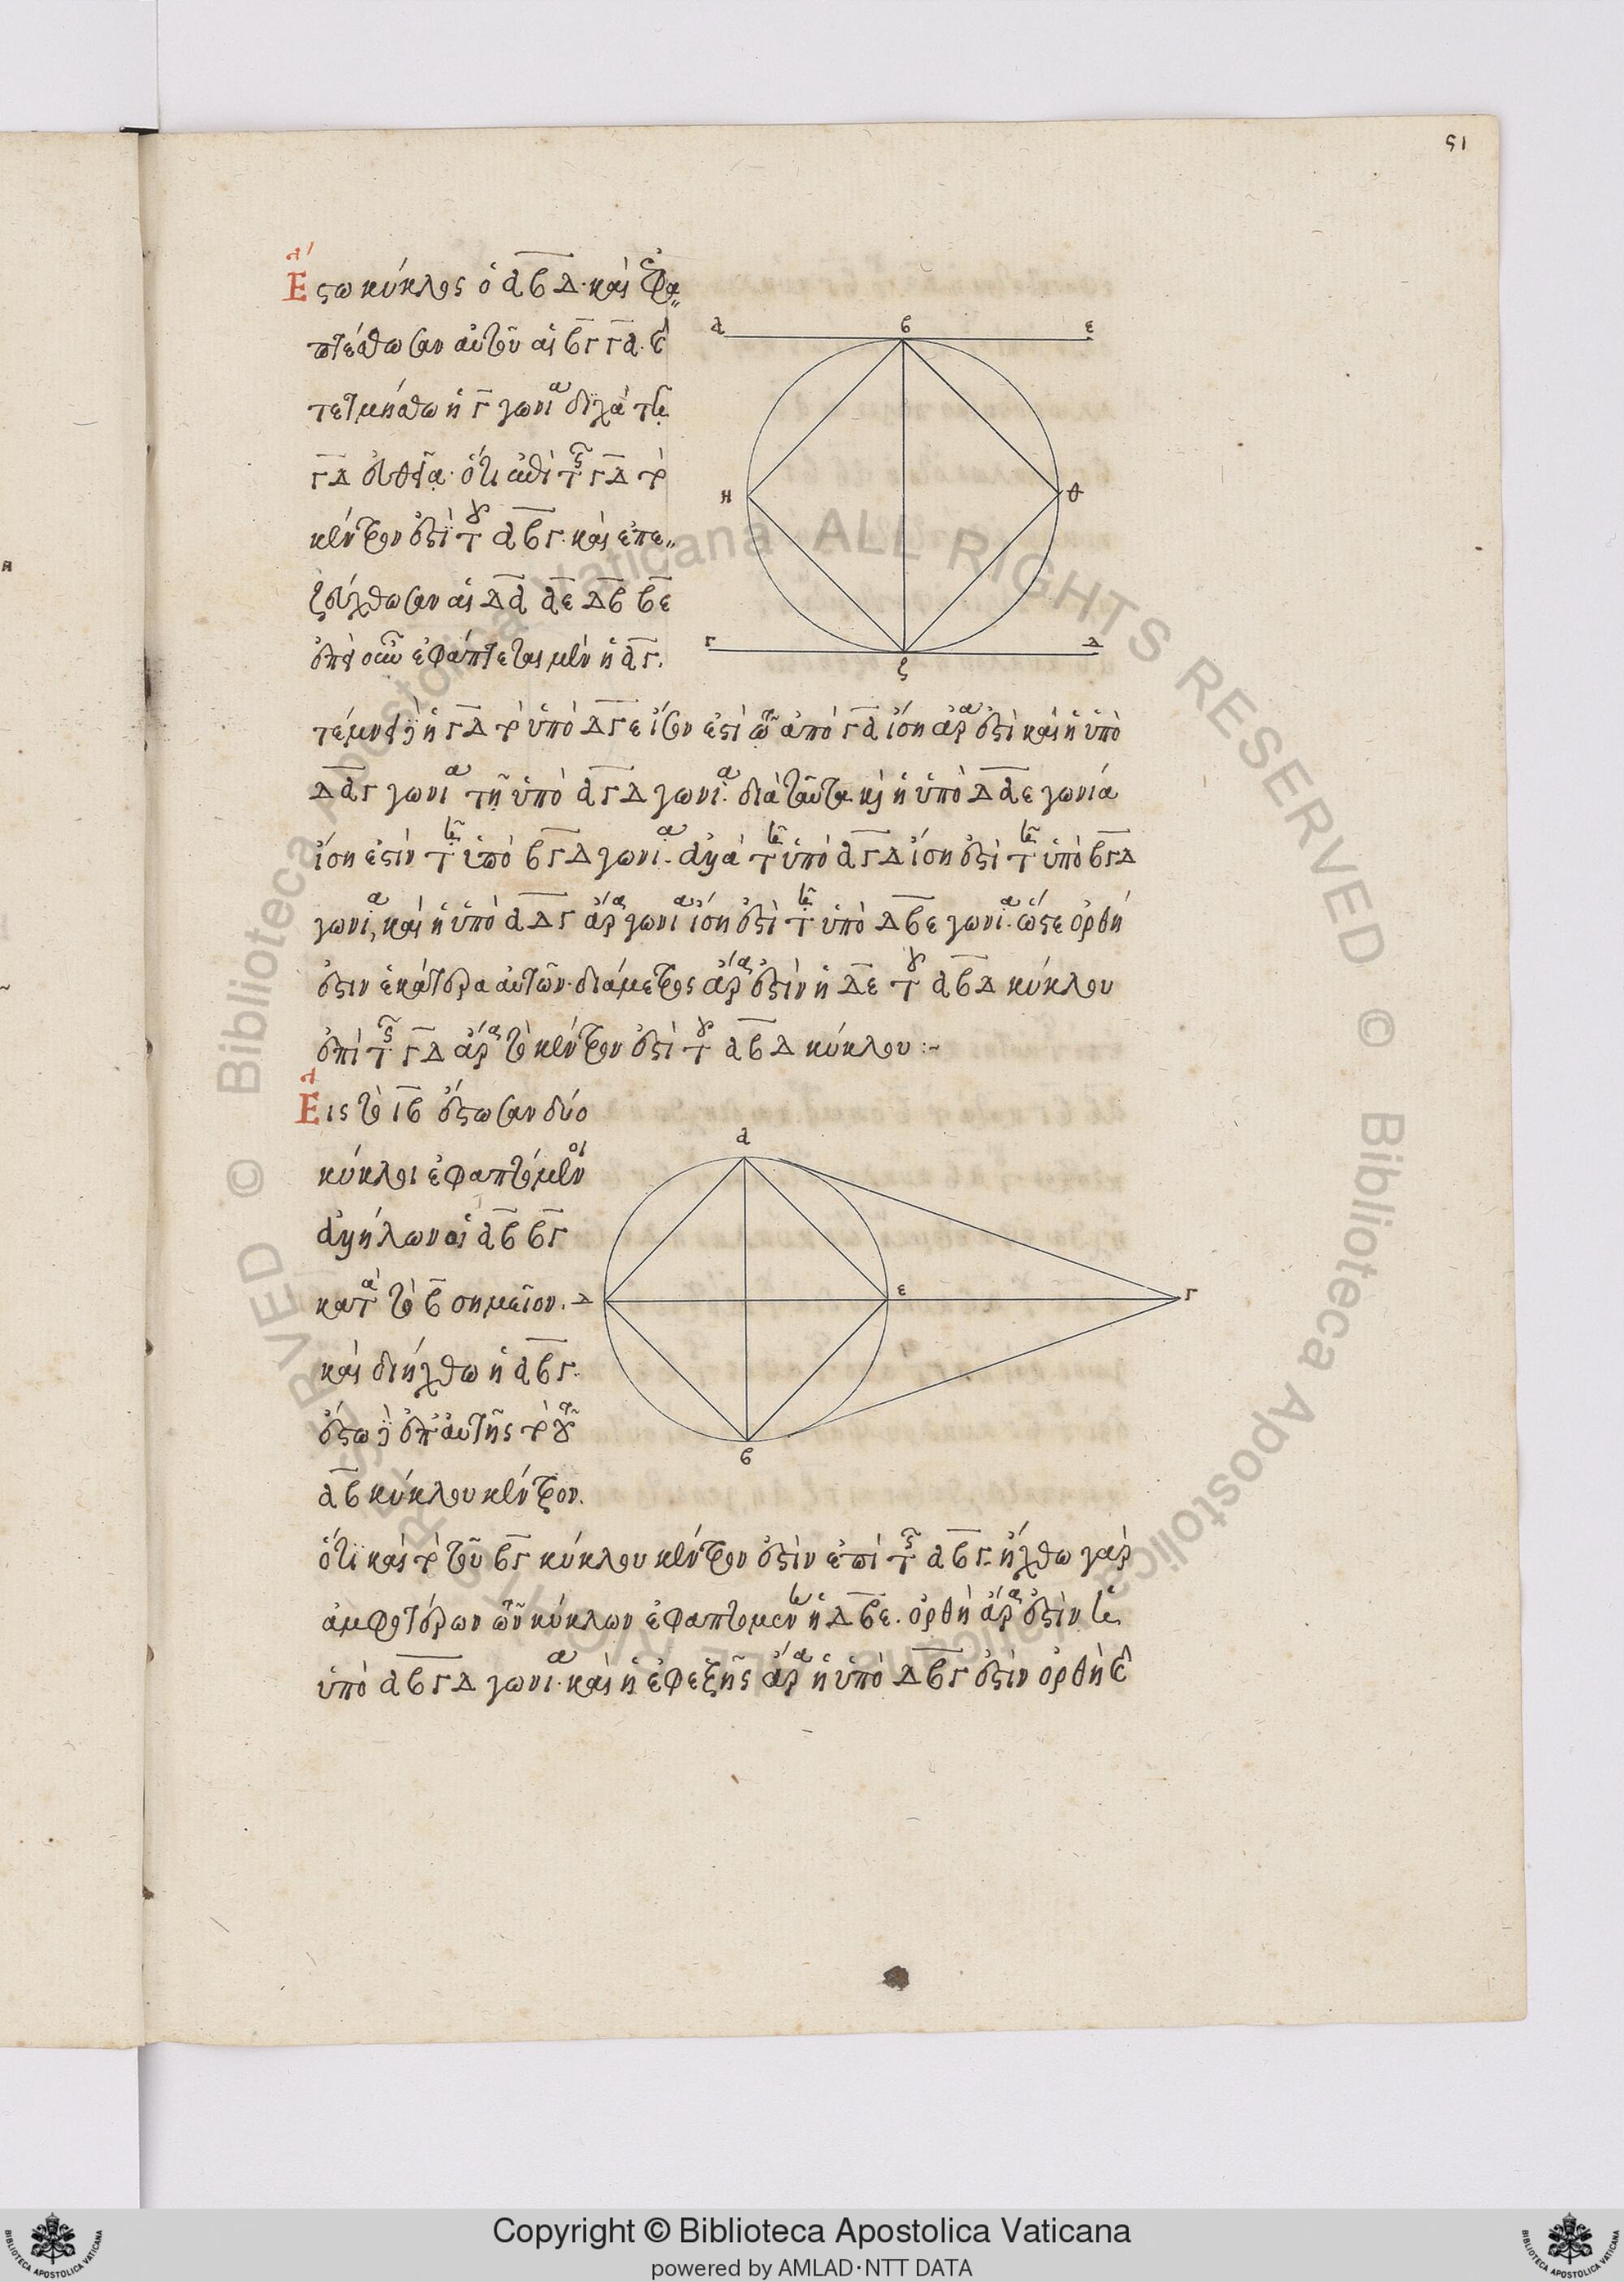 51
α΄
Ἔστω κύκλος ὁ αβδ. καὶ ἐφα
πτέσθωσαν αὐτοῦ αἱ βγ γα. καὶ
τετμήσθω ἡ γ γωνία δίχα τῇ
γδ εὐθεία. ὅτι ἐπὶ τῆς γδ τὸ
κέντρον ἐστὶ τοῦ αβγ. καὶ ἐπε
ζεύχθωσαν αἱ δα αε δβ βε
ἐπεὶ οὖν ἐφάπτεται μὲν ἡ αγ.
τέμνει δὲ ἡ γδ τὸ ὑπὸ δγε ἴσον ἐστὶ τῶ ἀπὸ γα ἴση ἄρα ἐστὶ καὶ ἡ ὑπὸ
δαγ γωνία τῆ ὑπὸ αγδ γωνία. διὰ ταῦτα καὶ ἡ ὑπὸ δαε γωνία
ἴση ἐστὶν τῆ ὑπὸ βγδ γωνία. ἀλλὰ τῆ ὑπὸ αγδ ἴση ἐστὶ τῆ ὑπὸ βγδ
γωνία, καὶ ἡ ὑπὸ αδγ ἄρα γωνία ἴση ἐστὶ τῆ ὑπὸ δβε γωνία. ὥστε ὀρθή
ἐστιν ἑκάτερα αὐτῶν. διάμετρος ἄρα ἐστὶν ἡ δε τοῦ αβδ κύκλου
ἐπὶ τῆς γδ ἄρα τὸ κέντρον ἐστὶ τοῦ αβδ κύκλου :~
α
Εἰς τὸ ιβ ἔστωσαν δύο
κύκλοι ἐφαπτόμενοι
ἀλλήλων οἱ αβ βγ
κατὰ τὸ β σημεῖον.
καὶ διήχθω ἡ αβγ.
ἔστω δὲ ἐπ' αὐτῆς τὸ τοῦ
αβ κύκλου κέντρον.
ὅτι καὶ τὸ τοῦ βγ κύκλου κέντρον ἐστὶν ἐπὶ τῆς αβγ. ἤχθω γὰρ
ἀμφοτέρων τῶν κύκλων ἐφαπτομένη ἡ δβε. ὀρθὴ ἄρα ἐστὶν ἡ
ὑπὸ αβγδ γωνία. καὶ ἡ ἐφεξῆς ἄρα ἡ ὑπὸ δβγ ἐστὶν ὀρθὴ καὶ
α β ε
η θ
γ ζ δ
α
δ ε γ
β
© Biblioteca Apostolica Vaticana ALL RIGHTS RESERVED © Biblioteca Apostolica Vaticana ALL RIGHTS RESERVED
Copyright © Biblioteca Apostolica Vaticana
powered by AMLAD・NTT DATA